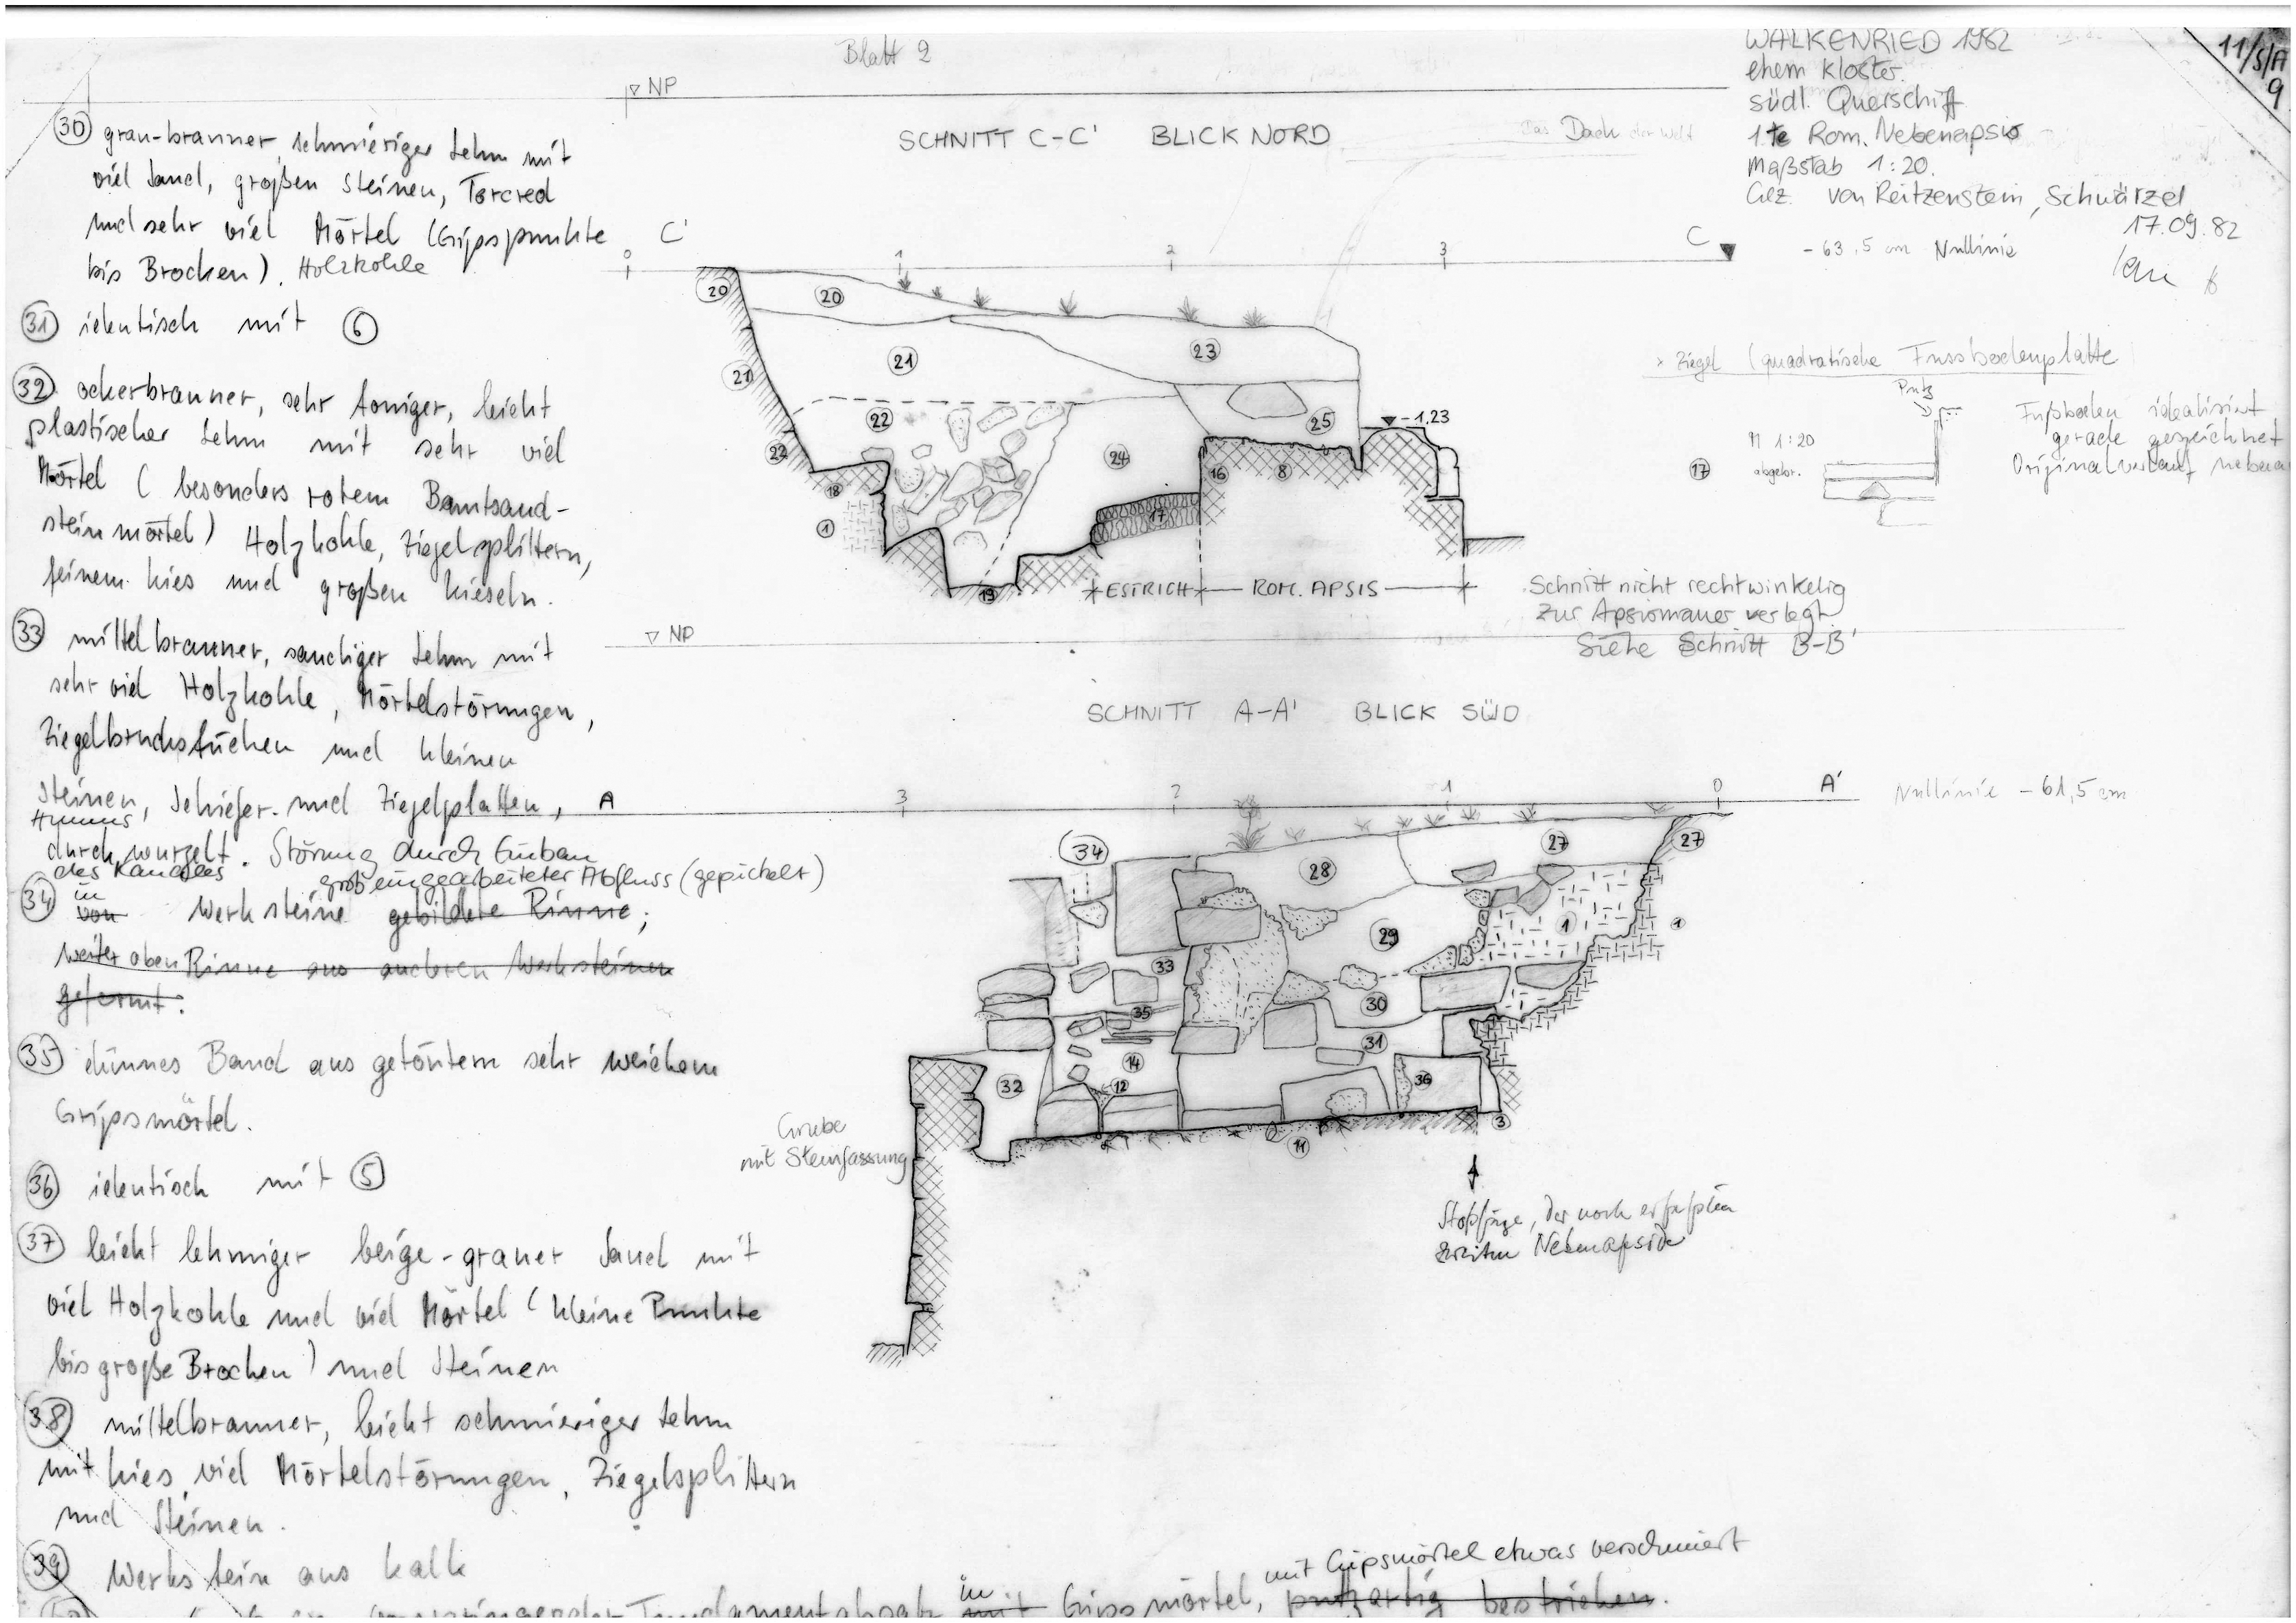 Blatt 2
WALKENRIED 1982
ehem Kloster.
südl. Querschiff
1te Rom. Nebenapsis
Maßstab 1:20.
Gez. von Reitzenstein, Schwürzel
17.09.82
11/S/A
9
NP
SCHNITT C-C' BLICK NORD
Das Dach der Welt
C'
0
1
2
3
C
-63,5 cm Nullinie
20
20
21
21
23
22
22
24
25
-1,23
18
1
16
8
17
19
ESTRICH
ROM. APSIS
Schnitt nicht rechtwinkelig
zur Apsismauer verlegt
Siehe Schnitt B-B'
x Ziegel (quadratische Fussbodenplatte
Putz
M 1:20
17
abgebr.
Fußboden idealisiert
gerade gezeichnet
Originalverlauf
NP
SCHNITT A-A' BLICK SÜD
A
3
2
1
0
A'
Nullinie -61,5 cm
34
28
27
27
29
1
1
33
30
35
31
14
32
12
36
3
11
Grube
mit Steinfassung
Stoßfuge, der noch erfaßten
zweiten Nebenapside
30 grau-brauner, schmieriger Lehm mit
viel Sand, großen Steinen, Torcred
und sehr viel Mörtel (Gipspunkte
bis Brocken). Holzkohle
31 identisch mit 6
32 ockerbrauner, sehr toniger, leicht
plastischer Lehm mit sehr viel
Mörtel (besonders rotem Buntsand-
steinmörtel) Holzkohle, Ziegelsplittern,
feinem kies und großen kieseln.
33 mittelbrauner, sandiger Lehm mit
sehr viel Holzkohle, Mörtelstörungen,
Ziegelbruchstücken und kleinen
Steinen, Schiefer- und Ziegelplatten,
Humus,
durchwurzelt. Störung durch Einbau
des Kanales
grob eingearbeiteter Abfluss (gepickelt)
34 in von Werksteine gebildete Rinne;
weiter oben Rinne aus anderen Werksteinen
geformt.
35 dünnes Band aus getöntem sehr weichem
Gipsmörtel.
36 identisch mit 5
37 leicht lehmiger beige-grauer Sand mit
viel Holzkohle und viel Mörtel (kleine Punkte
bis große Brocken) und Steinen
38 mittelbrauner, leicht schmieriger Lehm
mit kies, viel Mörtelstörungen, Ziegelsplittern
und Steinen.
39 Werkstein aus kalk
mit Gipsmörtel etwas verschmiert
Fundamentabsatz in mit Gipsmörtel, putzartig bestrichen.